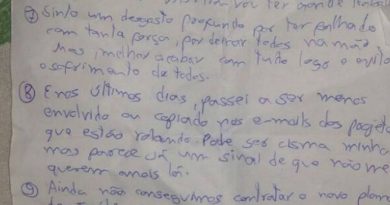 ② Sinto um desgosto profundo por ter falhado
com tanta força, por deixar todos na mão.
Mas, melhor acabar com tudo logo e evito
o sofrimento de todos.
⑧ E nos últimos dias, passei a ser menos
envolvido ou copiado nos e-mails dos projeto
que estão rolando. Pode ser cisma minha
mas parece já um sinal de que não me
querem mais lá.
⑨ Ainda não conseguimos contratar o novo plano